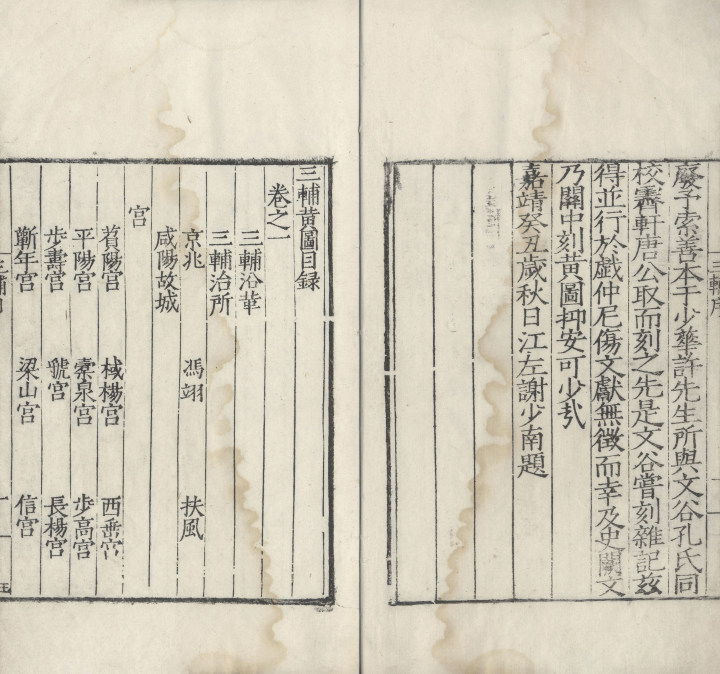 廢予索善本于少華許先生所與文谷孔氏同
校霽軒唐公取而刻之先是文谷嘗刻雜記茲
得並行於戯仲尼傷文獻無徵而幸及史闕文
乃關中刻黃圖抑安可少哉
嘉靖癸丑歲秋日江左謝少南題
三輔黃圖目録
卷之一
三輔沿革
三輔治所
京兆 馮翊 扶風
咸陽故城
宮
萯陽宮 棫楊宮 西垂宮
平陽宮 橐泉宮 步高宮
步壽宮 虢宮 長楊宮
蘄年宮 梁山宮 信宮